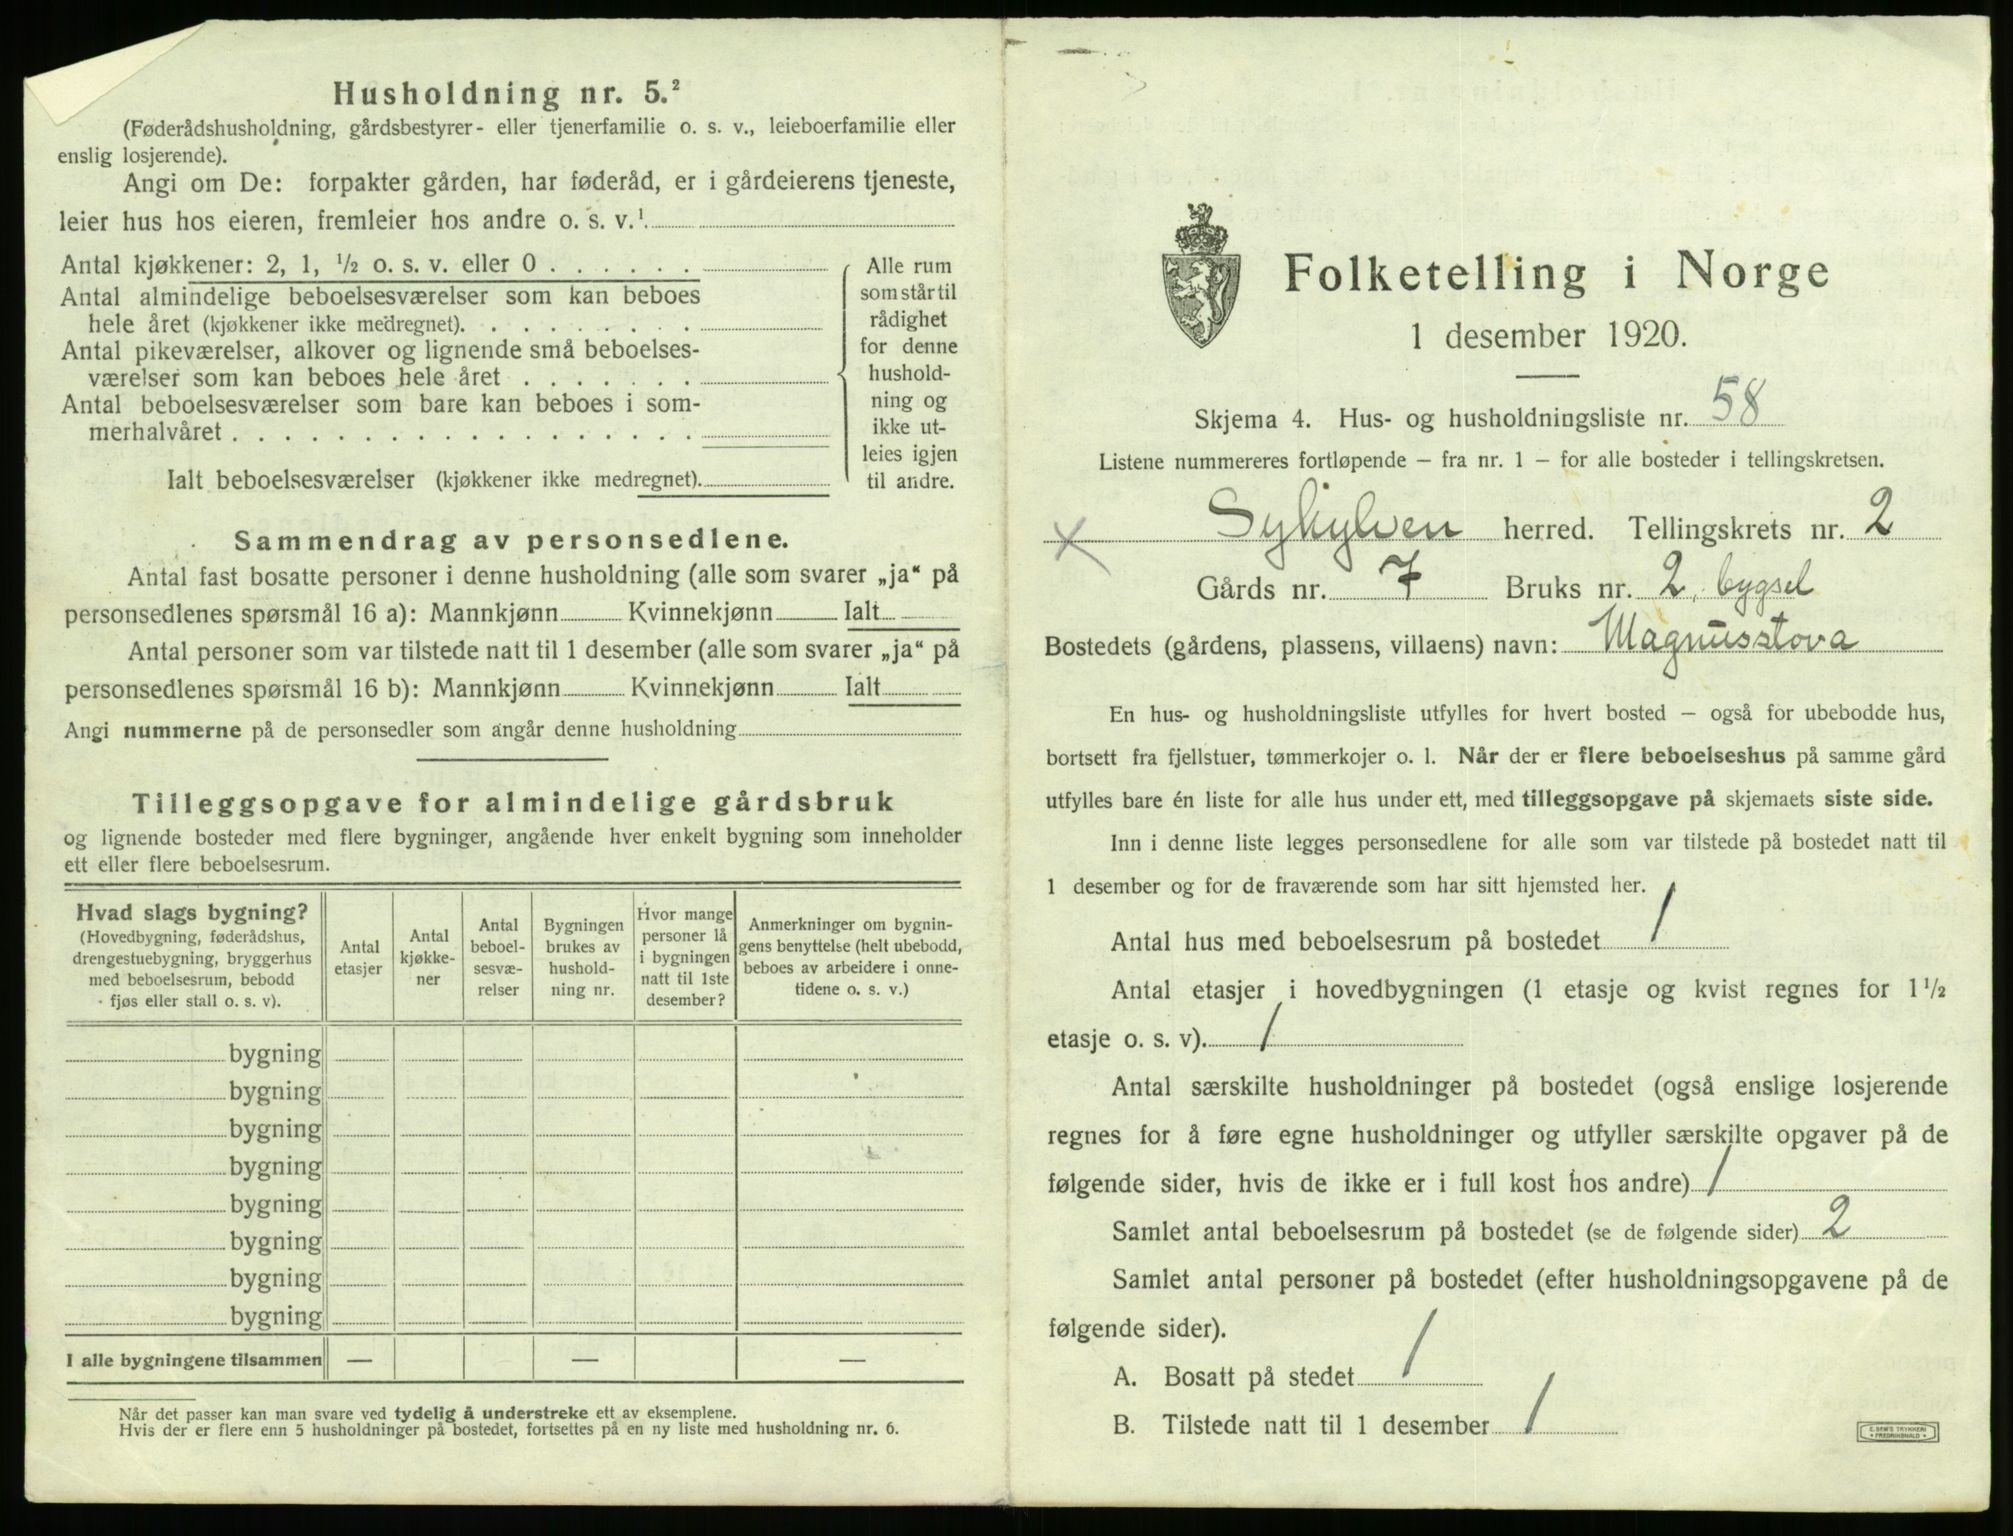 Husholdning nr. 5.²
(Føderådshusholdning, gårdsbestyrer- eller tjenerfamilie o. s. v., leieboerfamilie eller
enslig losjerende).
Angi om De: forpakter gården, har føderåd, er i gårdeierens tjeneste,
leier hus hos eieren, fremleier hos andre o. s. v.¹
Antal kjøkkener: 2, 1, ½ o. s. v. eller 0
Antal almindelige beboelsesværelser som kan beboes
hele året (kjøkkener ikke medregnet).
Antal pikeværelser, alkover og lignende små beboelses-
værelser som kan beboes hele året
Antal beboelsesværelser som bare kan beboes i som-
merhalvåret
Ialt beboelsesværelser (kjøkkener ikke medregnet).
Alle rum
som står til
rådighet
for denne
hushold-
ning og
ikke ut-
leies igjen
til andre.
Sammendrag av personsedlene.
Antal fast bosatte personer i denne husholdning (alle som svarer „ja“ på
personsedlenes spørsmål 16 a): Mannkjønn Kvinnekjønn Ialt
Antal personer som var tilstede natt til 1 desember (alle som svarer „ja“ på
personsedlenes spørsmål 16 b): Mannkjønn Kvinnekjønn Ialt
Angi nummerne på de personsedler som angår denne husholdning
Tilleggsopgave for almindelige gårdsbruk
og lignende bosteder med flere bygninger, angående hver enkelt bygning som inneholder
ett eller flere beboelsesrum.
Hvad slags bygning?
(Hovedbygning, føderådshus,
drengestuebygning, bryggerhus
med beboelsesrum, bebodd
fjøs eller stall o. s. v).
Antal
etasjer
Antal
kjøkke-
ner
Antal
beboel-
sesvæ-
relser
Bygningen
brukes av
hushold-
ning nr.
Hvor mange
personer lå
i bygningen
natt til 1ste
desember?
Anmerkninger om bygnin-
gens benyttelse (helt ubebodd,
beboes av arbeidere i onne-
tidene o. s. v.)
bygning
bygning
bygning
bygning
bygning
bygning
bygning
bygning
I alle bygningene tilsammen — — —
Når det passer kan man svare ved tydelig å understreke ett av eksemplene.
Hvis der er flere enn 5 husholdninger på bostedet, fortsettes på en ny liste med husholdning nr. 6.
Folketelling i Norge
1 desember 1920.
Skjema 4. Hus- og husholdningsliste nr. 58
Listene nummereres fortløpende – fra nr. 1 – for alle bosteder i tellingskretsen.
Sykylven herred. Tellingskrets nr. 2
Gårds nr. 7 Bruks nr. 2, bygsel
Bostedets (gårdens, plassens, villaens) navn: Magnusstova
En hus- og husholdningsliste utfylles for hvert bosted – også for ubebodde hus,
bortsett fra fjellstuer, tømmerkojer o. l. Når der er flere beboelseshus på samme gård
utfylles bare én liste for alle hus under ett, med tilleggsopgave på skjemaets siste side.
Inn i denne liste legges personsedlene for alle som var tilstede på bostedet natt til
1 desember og for de fraværende som har sitt hjemsted her.
Antal hus med beboelsesrum på bostedet 1
Antal etasjer i hovedbygningen (1 etasje og kvist regnes for 1½
etasje o. s. v). 1
Antal særskilte husholdninger på bostedet (også enslige losjerende
regnes for å føre egne husholdninger og utfyller særskilte opgaver på de
følgende sider, hvis de ikke er i full kost hos andre) 1
Samlet antal beboelsesrum på bostedet (se de følgende sider) 2
Samlet antal personer på bostedet (efter husholdningsopgavene på de
følgende sider).
A. Bosatt på stedet 1
B. Tilstede natt til 1 desember 1
E. SEM'S TRYKKERI
FREDRIKSHALD